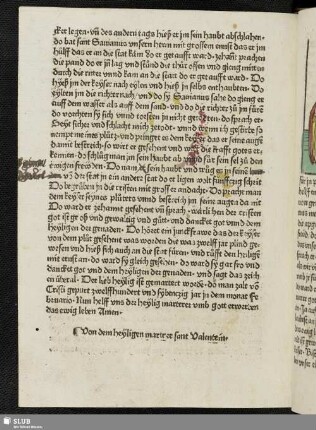 ket legen. vñ des andern tags hieß er jm sein haubt abschlahen.
do bat sant Samianus vnsern herrn mit grossem ernst das er jm
hülff das er an die stat kům do er getaufft ward. zehant prachen
die pand do er jñ lag vnd stůnd die thür offen vnd gieng mitten
durch die ritter vnnd kam an die stat do er getaufft ward. Do
hyeß jm der keyser nach eylen vnd hieß jn selbs enthaubten. Do
eylten jm die richter nach. vnd do sy Samianus sahe do gieng er
auff dem wasser als auff dem sand. vnd do die richter zů jm
do vorchten sy sich vnnd nicht do sprach er.
Deyt sicher vnd schlacht mich ze tode. vnnd wenn ich gestirbe so
nemet meines plůtz vnd pringet es dem keyser das er seine augen
damit bestreich. so wirt er gesehent vnd wirt die krafft gotes er
kennen. do schlůg man jm sein haubt ab vnd fůr sein sel zů den
ewigen freẅden. Do nam er sein haubt vnd trůg es in seine
vō der stat in ein ander stat do er ligen wolt fünfftzig schrit
Do begrůben jn die cristen mit grosser andacht. Do prachte man
dem keyser seynes plůtes vnnd bestreich jm seine augen da mit
Do ward er zehannt gesehent vñ sprach. wärlichen der cristen
got ist groß vnd gewaltig vnd gůt. vnd dancket got vnnd dem
heyligen der genaden. Do höret ein junckfraw das der keyser
von dem plůt gesehent was worden die was zwelff jar plind ge
wesen vnd hieß sich auch an die stat füren. vnd růfft den heilgen
mit ernst an. do ward sy gleich gesehen. do ward sy gar fro vnd
dancket got vnd dem heyligen der genaden. vnd sagt das zeich
en überal. Der lieb heylig ist gemarteret worden do man zalt võ
Cristi gepurt zwelffhundert vnd sybenczig jar in dem monat Fe
bruario. Nun helff vns der heylig marterer vmb gott erwerben
das ewig leben Amen.
Von dem heyligen marterer sant Valentein.
SLUB